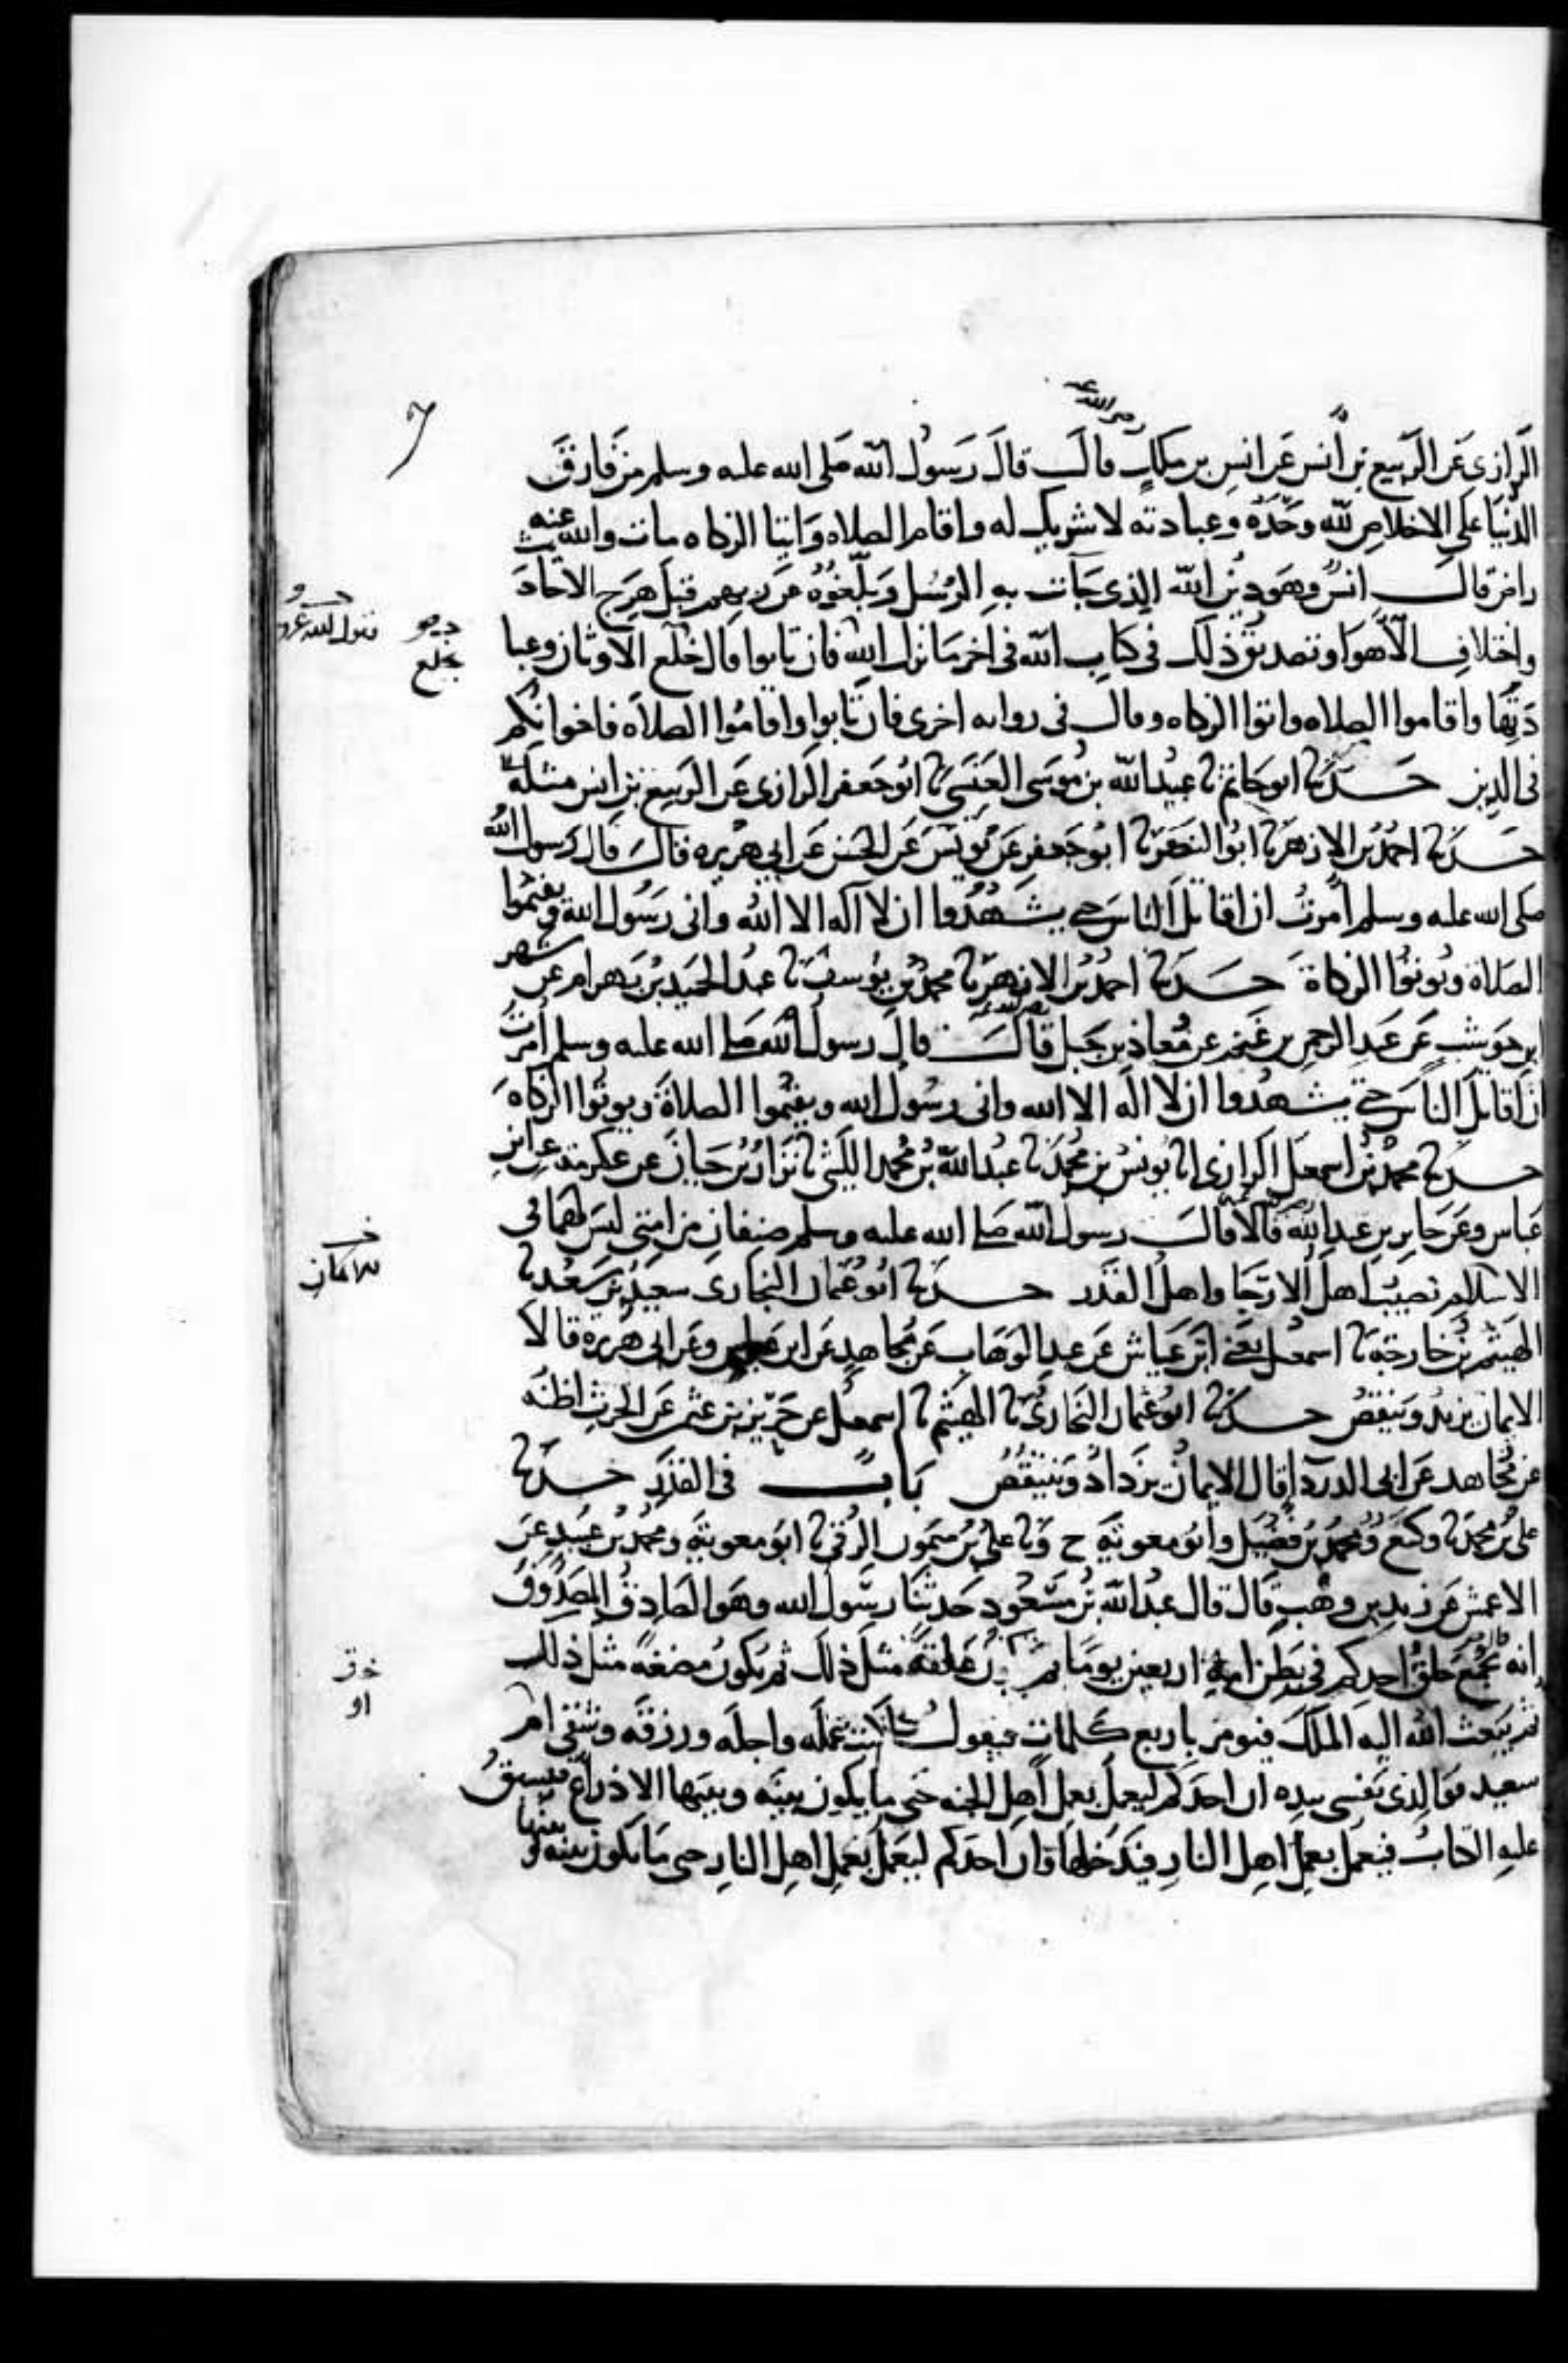 الرازي عن الربيع بن أنس عن أنس بن ملك قال قال رسول الله صلى الله عليه وسلم من فارق
الدنيا على الاخلاص لله وحده وعبادته لا شريك له واقام الصلاه وايتا الزكاه مات والله عنه
راض قال انس وهو دين الله الذي جات به الرسل وبلغوه عن ربهم قبل هرج الاحاد
واختلاف الاهوا وتصديق ذلك في كتاب الله في اخر ما نزل الله فان تابوا قال خلع الاوثان وعبا
دتها واقاموا الصلاه واتوا الزكاه وقال في روايه اخرى فان تابوا واقاموا الصلاه فاخوانكم
في الدين حدثنا ابو حاتم نا عبيد الله بن موسى العبسي نا ابو جعفر الرازي عن الربيع بن انس مثله
حدثنا احمد بن الازهر نا ابو النضر نا ابو جعفر عن يونس عن الحسن عن ابي هريره قال قال رسول الله
صلى الله عليه وسلم امرت ان اقاتل الناس حتى يشهدوا ان لا اله الا الله واني رسول الله ويقيموا
الصلاة ويوتوا الزكاة حدثنا احمد بن الازهر نا محمد بن يوسف نا عبد الحميد بن بهرام عن شهر
ابن حوشب عن عبد الرحمن بن غنم عن معاذ بن جبل قال قال رسول الله صلى الله عليه وسلم امرت
ان اقاتل الناس حتى يشهدوا ان لا اله الا الله واني رسول الله ويقيموا الصلاة ويوتوا الزكاه
حدثنا محمد بن اسمعيل الرازي انا يونس بن محمد نا عبد الله بن محمد الليثي نا نزار بن حيان عن عكرمة عن ابن
عباس وعن جابر بن عبد الله قالا قال رسول الله صلى الله عليه وسلم صنفان من امتي ليس لهما في
الاسلام نصيب اهل الارجا واهل القدر حدثنا ابو عثمان البخاري سعيد بن سعد نا
الهيثم بن خارجة نا اسمعيل يعني ابن عياش عن عبد الوهاب عن مجاهد عن ابن عباس وعن ابي هريرة قالا
الايمان يزيد وينقص حدثنا ابو عثمان البخاري نا الهيثم نا اسمعيل عن حريز بن عثمن عن الحرث اظنه
عن مجاهد عن ابي الدردا قال الايمان يزداد وينتقص باب في القدر حدثنا
علي بن محمد نا وكيع ومحمد بن فضيل وابو معوية ح ونا علي بن ميمون الرقي نا ابو معوية ومحمد بن عبيد عن
الاعمش عن زيد بن وهب قال قال عبد الله بن مسعود حدثنا رسول الله وهو الصادق المصدوق
انه يجمع خلق احدكم في بطن امه اربعين يوما ثم يكون علقة مثل ذلك ثم يكون مضغة مثل ذلك
ثم يبعث الله اليه الملك فيومر باربع كلمات فيقول اكتب عمله واجله ورزقه وشقي ام
سعيد فوالذي نفسي بيده ان احدكم ليعمل بعمل اهل الجنه حتى ما يكون بينه وبينها الا ذراع فيسبق
عليه الكتاب فيعمل بعمل اهل النار فيدخلها وان احدكم ليعمل بعمل اهل النار حتى ما يكون بينه وبينها